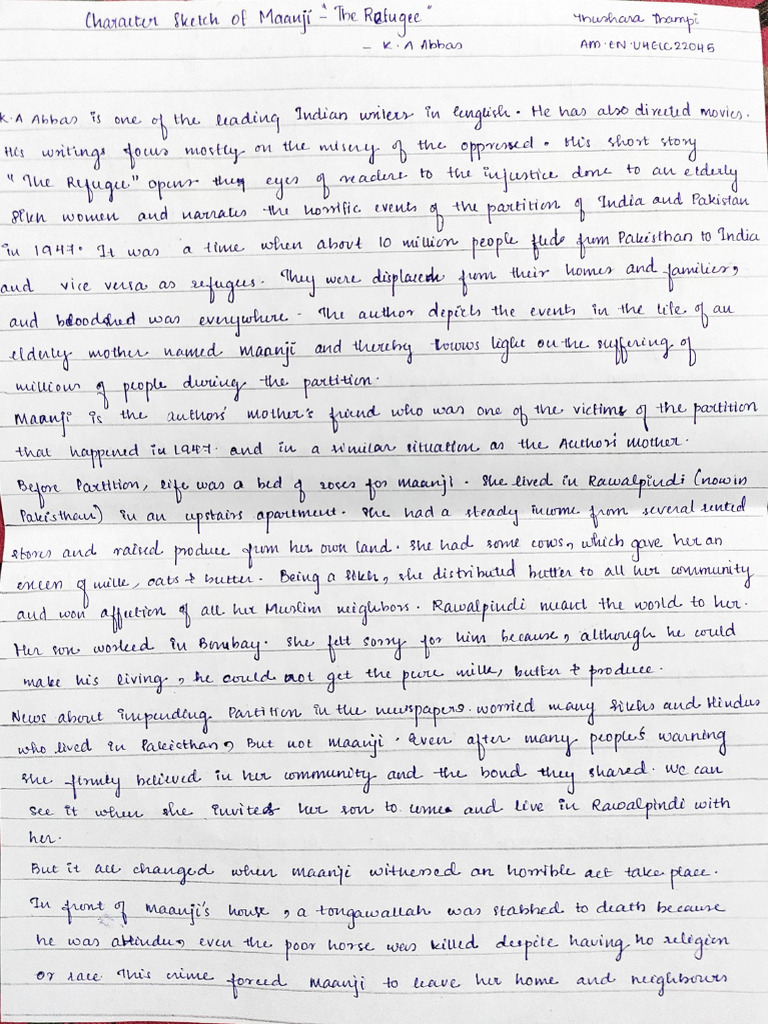 Character Sketch of Maanji - "The Refugee"
Thushara Thampi
- K.A Abbas
AM.EN.U4ELC22045
K.A Abbas is one of the leading Indian writers in English. He has also directed movies.
His writings focus mostly on the misery of the oppressed. His short story
"The Refugee" opens they eyes of readers to the injustice done to an elderly
Sikh women and narrates the horrific events of the partition of India and Pakistan
in 1947. It was a time when about 10 million people from Pakisthan to India
and vice versa as refugees. They were displaced from their homes and families,
and bloodshed was everywhere. The author depicts the events in the life of an
elderly mother named Maanji and thereby light on the suffering of
millions of people during the partition.
Maanji is the authors' mother's friend who was one of the victims of the partition
that happened in 1947. and in a similar situation as the Author's mother.
Before Partition, life was a bed of roses for maanji. She lived in Rawalpindi (now in
Pakisthan) in an upstairs apartment. She had a steady income from several rented
stores and raised produce from her own land. She had some cows, which gave her an
of milk, oats & butter. Being a Sikh, she distributed butter to all her community
and won affection of all her Muslim neighbors. Rawalpindi meant the world to her.
Her son worked in Bombay. She felt sorry for him because, although he could
make his living, he could not get the pure milk, butter & produce.
News about impending Partition in the newspapers. worried many Sikhs and Hindus
who lived in Pakisthan, But not maanji. Even after many people's warning
she firmly believed in her community and the bond they shared. We can
see it when she invited her son to come and live in Rawalpindi with
her.
But it all changed when maanji witnessed an horrible act take place.
In front of maanji's house, a tongawallah was stabbed to death because
he was a Hindu, even the poor horse was killed despite having no religion
or race. This crime forced maanji to leave her home and neighbours